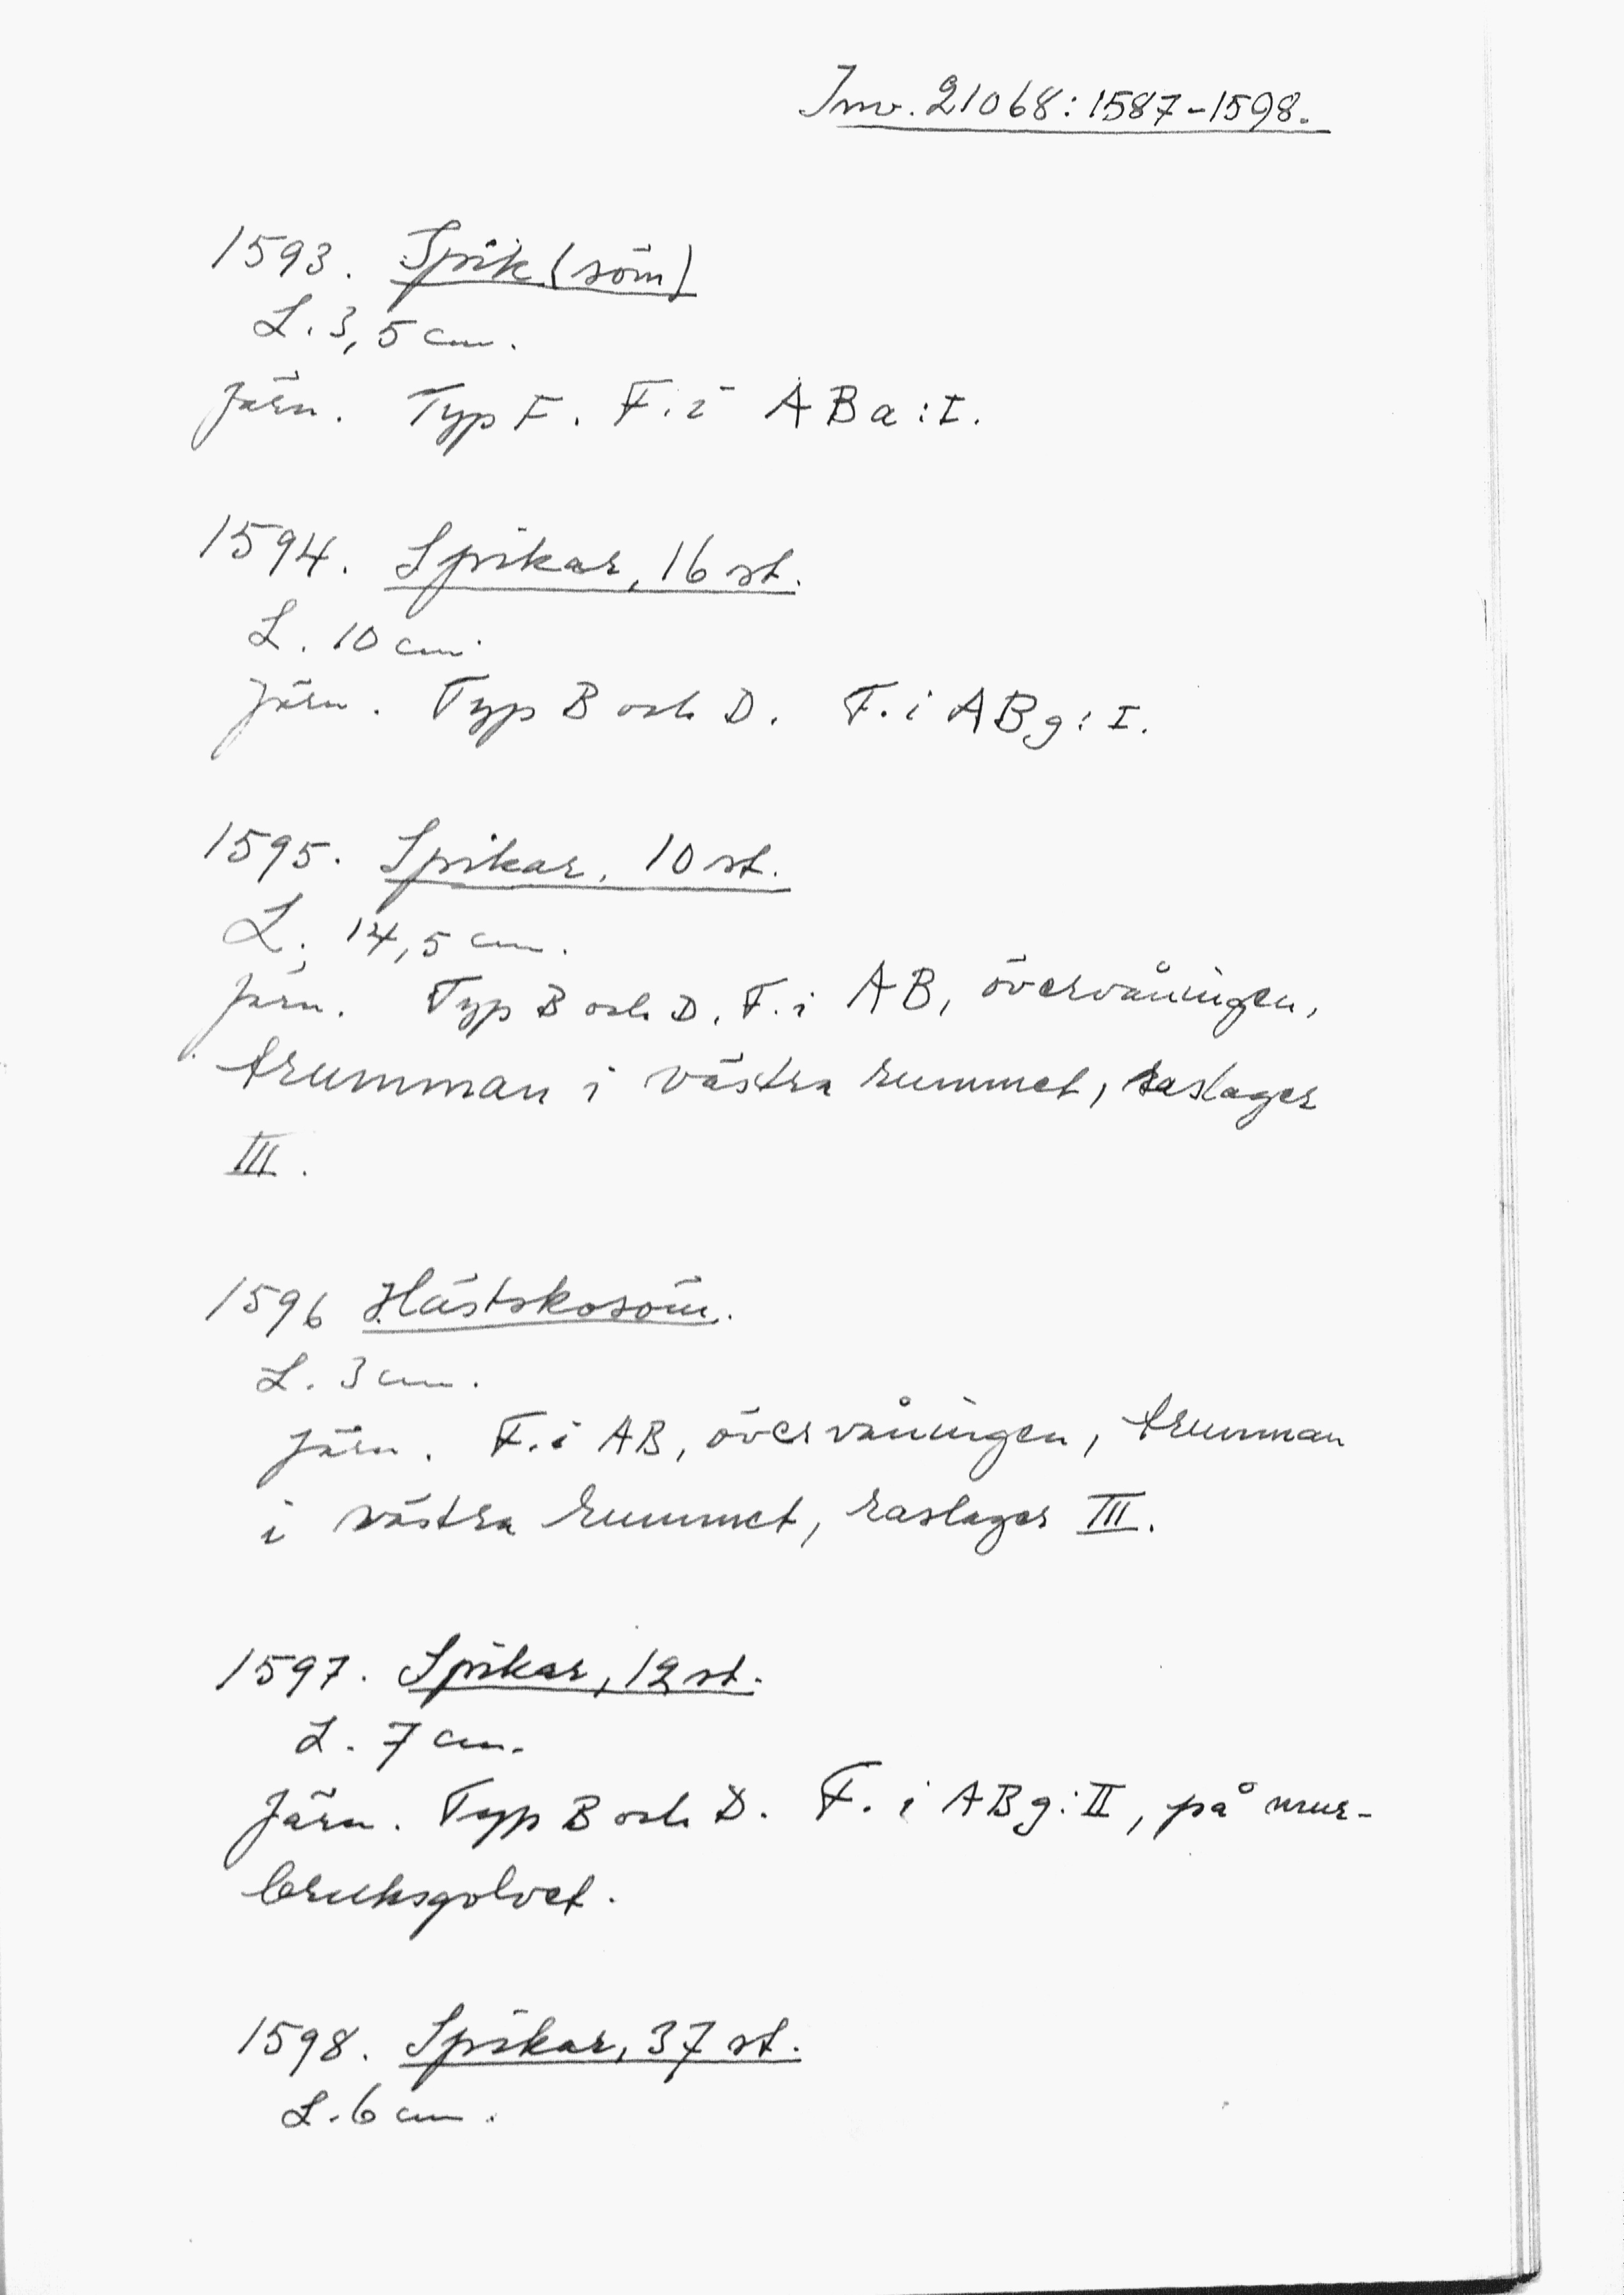 Inv. 21068:1587-1598.
1593. Spik (söm)
L. 3,5 cm.
Järn. Typ F. F. i ABa:I.
1594. Spikar, 16 st.
L. 10 cm.
Järn. Typ B och D. F. i ABg:I.
1595. Spikar, 10 st.
L. 14,5 cm.
Järn. Typ B och D. F. i AB, övervåningen,
trumman i västra rummet, raslager
III.
1596 Hästskosöm.
L. 3 cm.
Järn. F. i AB, övervåningen, trumman
i västra rummet, raslager III.
1597. Spikar, 12 st.
L. 7 cm.
Järn. Typ B och D. F. i ABg:II, på mur-
bruksgolvet.
1598. Spikar, 37 st.
L. 6 cm.